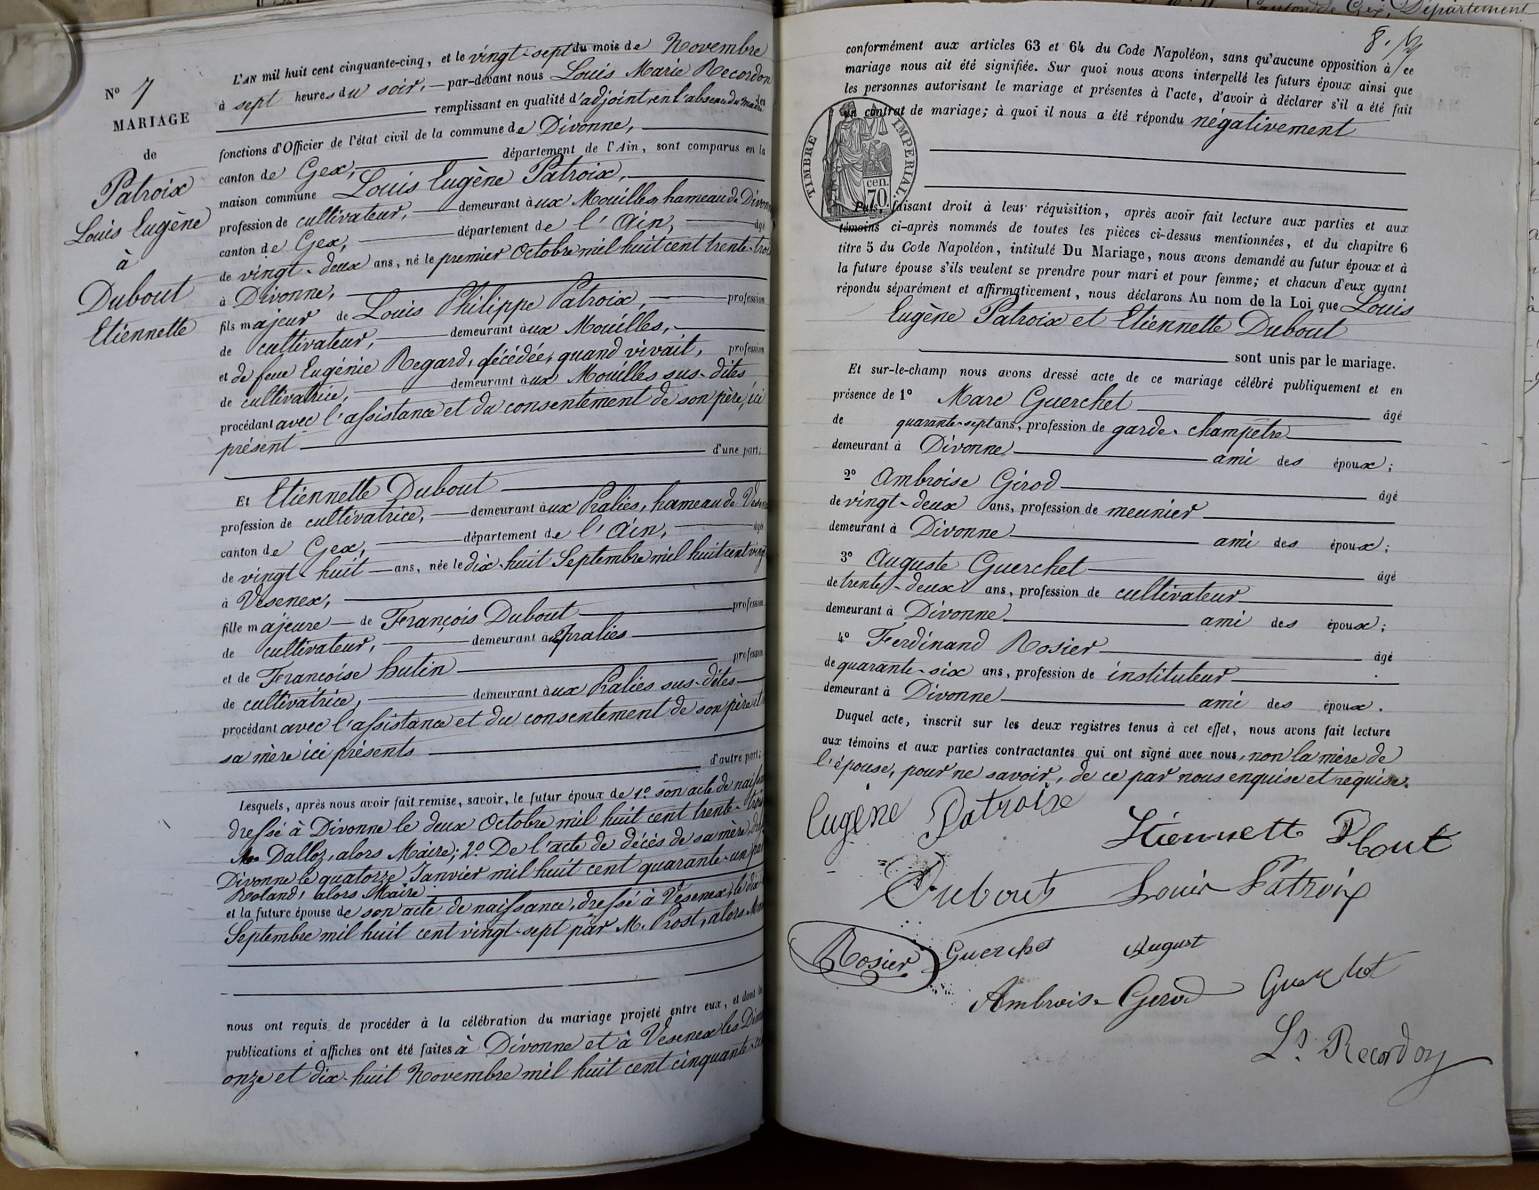 Canton de Gex, Département
N° 7
MARIAGE
de
Patroix
Louis Eugène
à
Dubout
Etiennette
L'AN mil huit cent cinquante-cinq, et le vingt-sept du mois de Novembre
à sept heures du soir, par-devant nous Louis Marie Recordon
remplissant en qualité d'adjoint, en l'absence du maire les
fonctions d'Officier de l'état civil de la commune de Divonne,
canton de Gex, département de l'Ain, sont comparus en la
maison commune Louis Eugène Patroix,
profession de cultivateur, demeurant aux Mouilles, hameau de Divonne
canton de Gex, département de l'Ain, âgé
de vingt-deux ans, né le premier Octobre mil huit cent trente-trois
à Divonne,
fils majeur de Louis Philippe Patroix, profession
de cultivateur, demeurant aux Mouilles,
et de feue Eugénie Regard, décédée, quand vivait, profession
de cultivatrice, demeurant aux Mouilles sus-dites
procédant avec l'assistance et du consentement de son père, ici
présent d'une part;
Et Etiennette Dubout
profession de cultivatrice, demeurant aux Pralies, hameau de
canton de Gex, département de l'Ain, âgée
de vingt-huit ans, née le dix-huit Septembre mil huit cent vingt
à Vesenex,
fille majeure de François Dubout profession
de cultivateur, demeurant aux pralies
et de Françoise hutin profession
de cultivatrice, demeurant aux Pralies sus-dites
procédant avec l'assistance et du consentement de son père et
sa mère ici présents
d'autre part;
Lesquels, après nous avoir fait remise, savoir, le futur époux de 1.° son acte de
dressé à Divonne le deux Octobre mil huit cent trente-trois
Dalloz, alors Maire; 2.° De l'acte de décès de sa mère,
Divonne le quatorze Janvier mil huit cent quarante-un
Roland, alors Maire
et la future épouse de son acte de naissance, dressé à Vesenex, le dix
Septembre mil huit cent vingt-sept par M. Prost, alors
nous ont requis de procéder à la célébration du mariage projeté entre eux, et dont les
publications et affiches ont été faites à Divonne et à Vesenex les
onze et dix-huit Novembre mil huit cent cinquante
conformément aux articles 63 et 64 du Code Napoléon, sans qu'aucune opposition à ce
mariage nous ait été signifiée. Sur quoi nous avons interpellé les futurs époux ainsi que
les personnes autorisant le mariage et présentes à l'acte, d'avoir à déclarer s'il a été fait
un contrat de mariage; à quoi il nous a été répondu negativement
TIMBRE IMPERIAL
70 cen.
Puis, faisant droit à leur réquisition, après avoir fait lecture aux parties et aux
témoins ci-après nommés de toutes les pièces ci-dessus mentionnées, et du chapitre 6
titre 5 du Code Napoléon, intitulé Du Mariage, nous avons demandé au futur époux et à
la future épouse s'ils veulent se prendre pour mari et pour femme; et chacun d'eux ayant
répondu séparément et affirmativement, nous déclarons Au nom de la Loi que Louis
Eugène Patroix et Etiennette Dubout
sont unis par le mariage.
Et sur-le-champ nous avons dressé acte de ce mariage célébré publiquement et en
présence de 1° Marc Guerchet âgé
de quarante-sept ans, profession de garde-champêtre
demeurant à Divonne ami des époux;
2° Ambroise Girod âgé
de vingt-deux ans, profession de meunier
demeurant à Divonne ami des époux;
3° Auguste Guerchet âgé
de trente-deux ans, profession de cultivateur
demeurant à Divonne ami des époux;
4° Ferdinand Rosier âgé
de quarante-six ans, profession de instituteur
demeurant à Divonne ami des époux.
Duquel acte, inscrit sur les deux registres tenus à cet effet, nous avons fait lecture
aux témoins et aux parties contractantes qui ont signé avec nous, non la mère de
l'épouse, pour ne savoir, de ce par nous enquise et requise.
Eugène Patroix
Etiennette
Dubout Louis Patroix
Rosier Guerchet August
Ambroise Girod
Ls Recordon